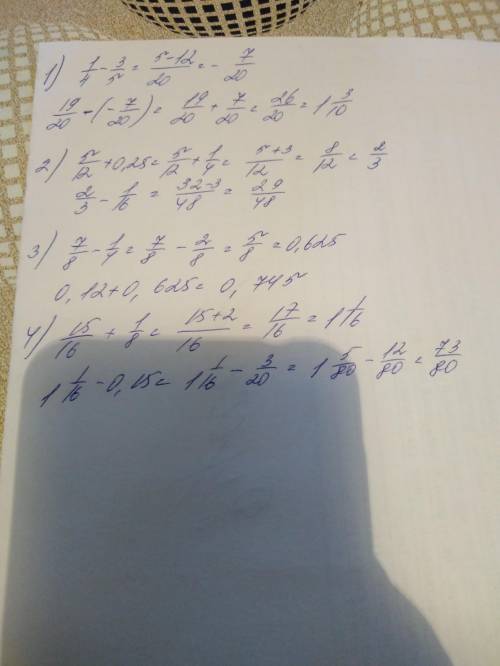 1) 1/4 - 3/5 = 5-12/20 = - 7/20
19/20 - (- 7/20) = 19/20 + 7/20 = 26/20 = 1 3/10
2) 5/12 + 0,25 = 5/12 + 1/4 = 5+3/12 = 8/12 = 2/3
2/3 - 1/16 = 32-3/48 = 29/48
3) 7/8 - 1/4 = 7/8 - 2/8 = 5/8 = 0,625
0,12 + 0,625 = 0,745
4) 15/16 + 1/8 = 15+2/16 = 17/16 = 1 1/16
1 1/16 - 0,15 = 1 1/16 - 3/20 = 1 5/80 - 12/80 = 73/80